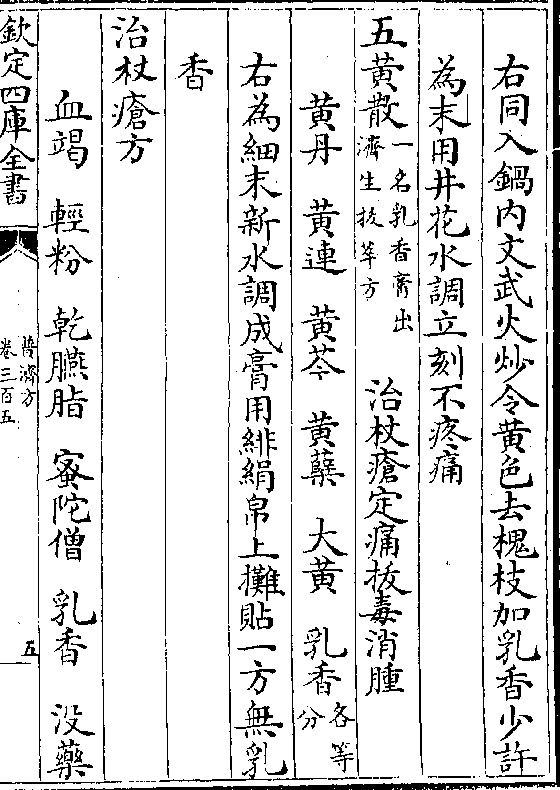 右同入鍋内文武火炒令黄色去槐枝加乳香少許
為末用井花水調立刻不疼痛
五黄散一名乳香膏出濟生拔萃方 治杖瘡定痛拔毒消腫
黄丹 黄連 黄芩 黄蘗 大黄 乳香各等分
右為細末新水調成膏用緋絹帛上攤貼一方無乳
香
治杖瘡方
血竭 輕粉 乾臙脂 蜜陀僧 乳香 没藥
欽定四庫全書
普濟方
卷三百五
五